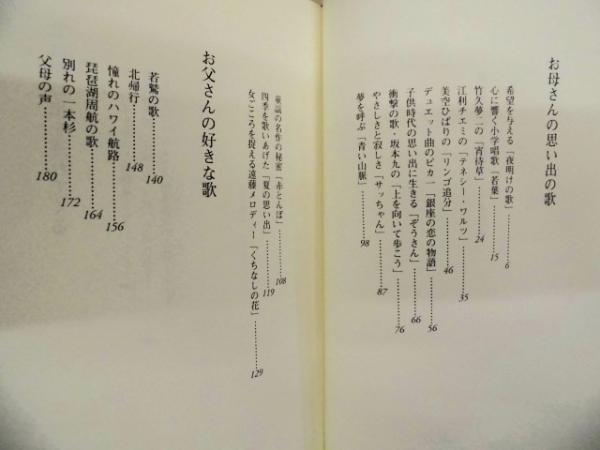 お母さんの思い出の歌
希望を与える「夜明けの歌」………6
心に響く小学唱歌「若葉」………15
竹久夢二の「宵待草」………24
江利チエミの「テネシー・ワルツ」………35
美空ひばりの「リンゴ追分」………46
デュエット曲のピカ一「銀座の恋の物語」………56
子供時代の思い出に生きる「ぞうさん」………66
衝撃の歌・坂本九の「上を向いて歩こう」………76
やさしさと寂しさ「サッちゃん」………87
夢を呼ぶ「青い山脈」………98
童謡の名作の秘密「赤とんぼ」………108
四季を歌いあげた「夏の思い出」………119
女ごころを捉える遠藤メロディー「くちなしの花」………129
お父さんの好きな歌
若鷲の歌………140
北帰行………148
憧れのハワイ航路………156
琵琶湖周航の歌………164
別れの一本杉………172
父母の声………180